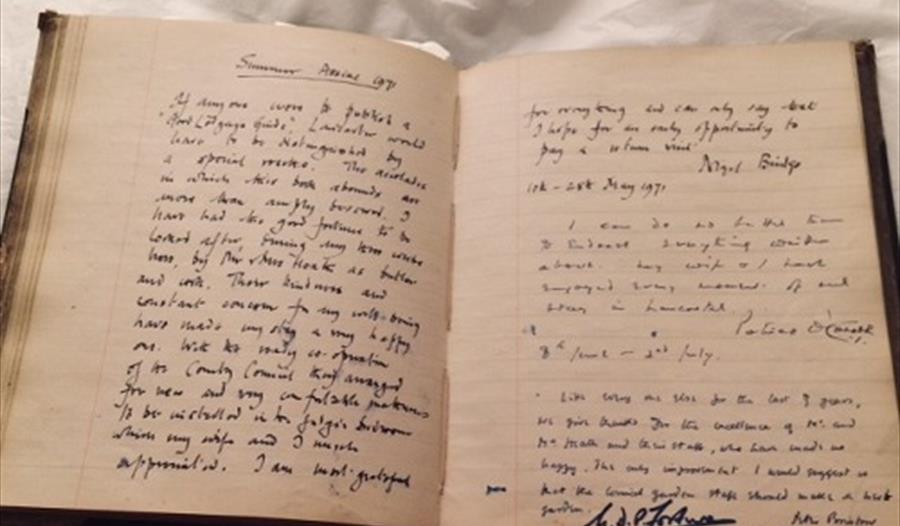 Summer Assize 1971
If anyone were to publish a
"Good Lodgings Guide", Lancaster would
have to be distinguished by
a special rosette. The accolades
in which this book abounds are
more than amply bestowed. I
have had the good fortune to be
looked after, during my three weeks
here, by Mr & Mrs Heath as butler
and cook. Their kindness and
constant concern for my well-being
have made my stay a very happy
one. With the ready co-operation
of the County Council they arranged
for new and very comfortable mattresses
to be installed in the Judge's bedroom
which my wife and I much
appreciated. I am most grateful
for everything and can only say that
I hope for an early opportunity to
pay a return visit
Nigel Bridge
10th - 28th May 1971
I can do no better than
to endorse everything written
above. My wife & I have
enjoyed every moment of our
in Lancaster.
8th June - 2nd July.
Like every one else for the last 3 years,
we give thanks for the excellence of Mr. and
Mrs Heath and their staff, who have made us
happy. The only improvement I would suggest is
that the council garden staff should make a
garden.